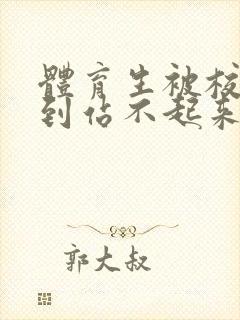 體育生被校
到佔不起来
郭大叔